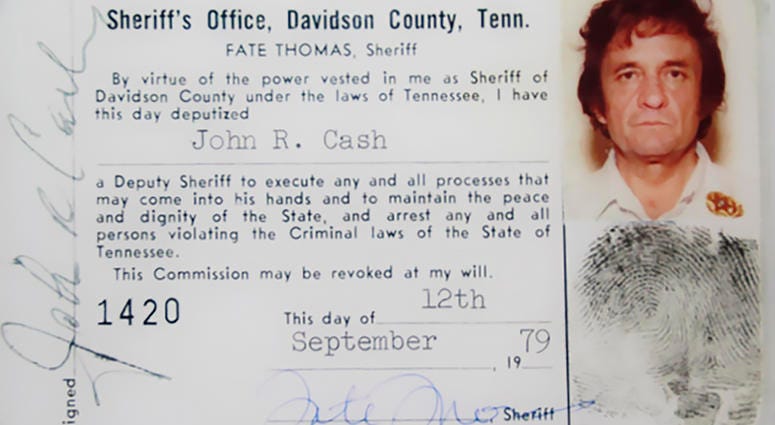 Sheriff's Office, Davidson County, Tenn.
FATE THOMAS, Sheriff
By virtue of the power vested in me as Sheriff of
Davidson County under the laws of Tennessee, I have
this day deputized
John R. Cash
a Deputy Sheriff to execute any and all processes that
may come into his hands and to maintain the peace
and dignity of the State, and arrest any and all
persons violating the Criminal laws of the State of
Tennessee.
This Commission may be revoked at my will.
1420
This day of 12th
September, 1979
Fate Thomas, Sheriff
igned John R Cash